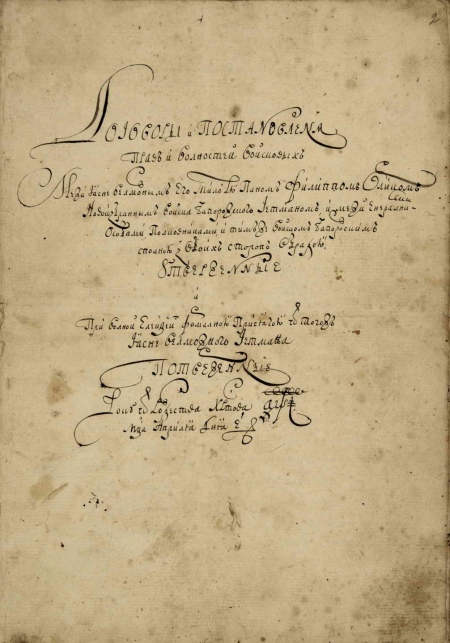 2
Договоры и Постановленѧ
Правъ и волностей войсковыхъ
Межи Ясне велможнымъ Его Милостю Паномъ Филиппомъ Орликомъ
Новоизбраннымъ войска Запорожского Гетманомъ, и межи Енералними
Особами Полковниками, и тимже войскомъ Запорожскимъ
с обоихъ сторонъ
Утверженные
и
При волной Елекціи формалною Присягою ѿ тогожъ
Ясне велможного Гетмана
Потверженные
Року ѿ Рождества Христова ҂аѱі
Мца Априля Дня е